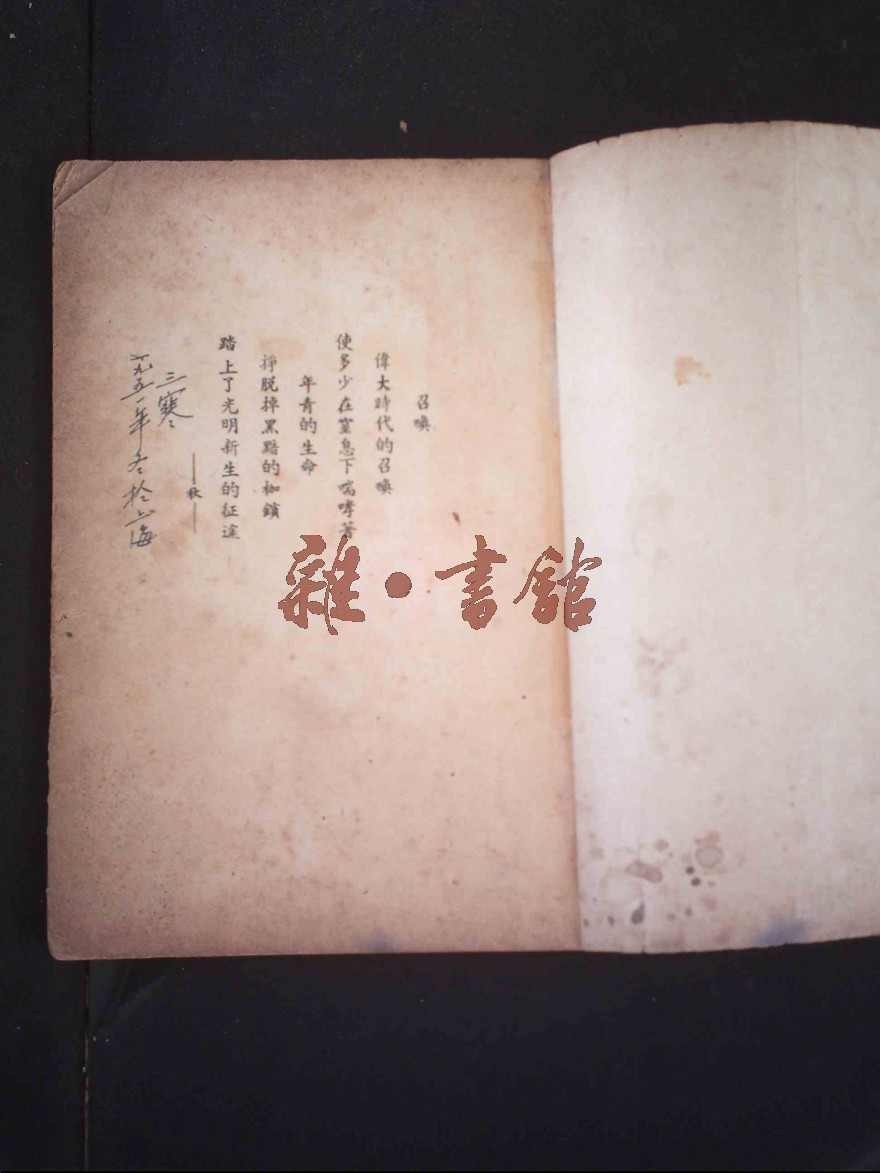 召喚
偉大時代的召喚
使多少在窒息下喘哮著
年青的生命
掙脫掉黑黯的枷鎖
踏上了光明新生的征途
——秋——
三寒
一九五一年冬於上海
雜·書館